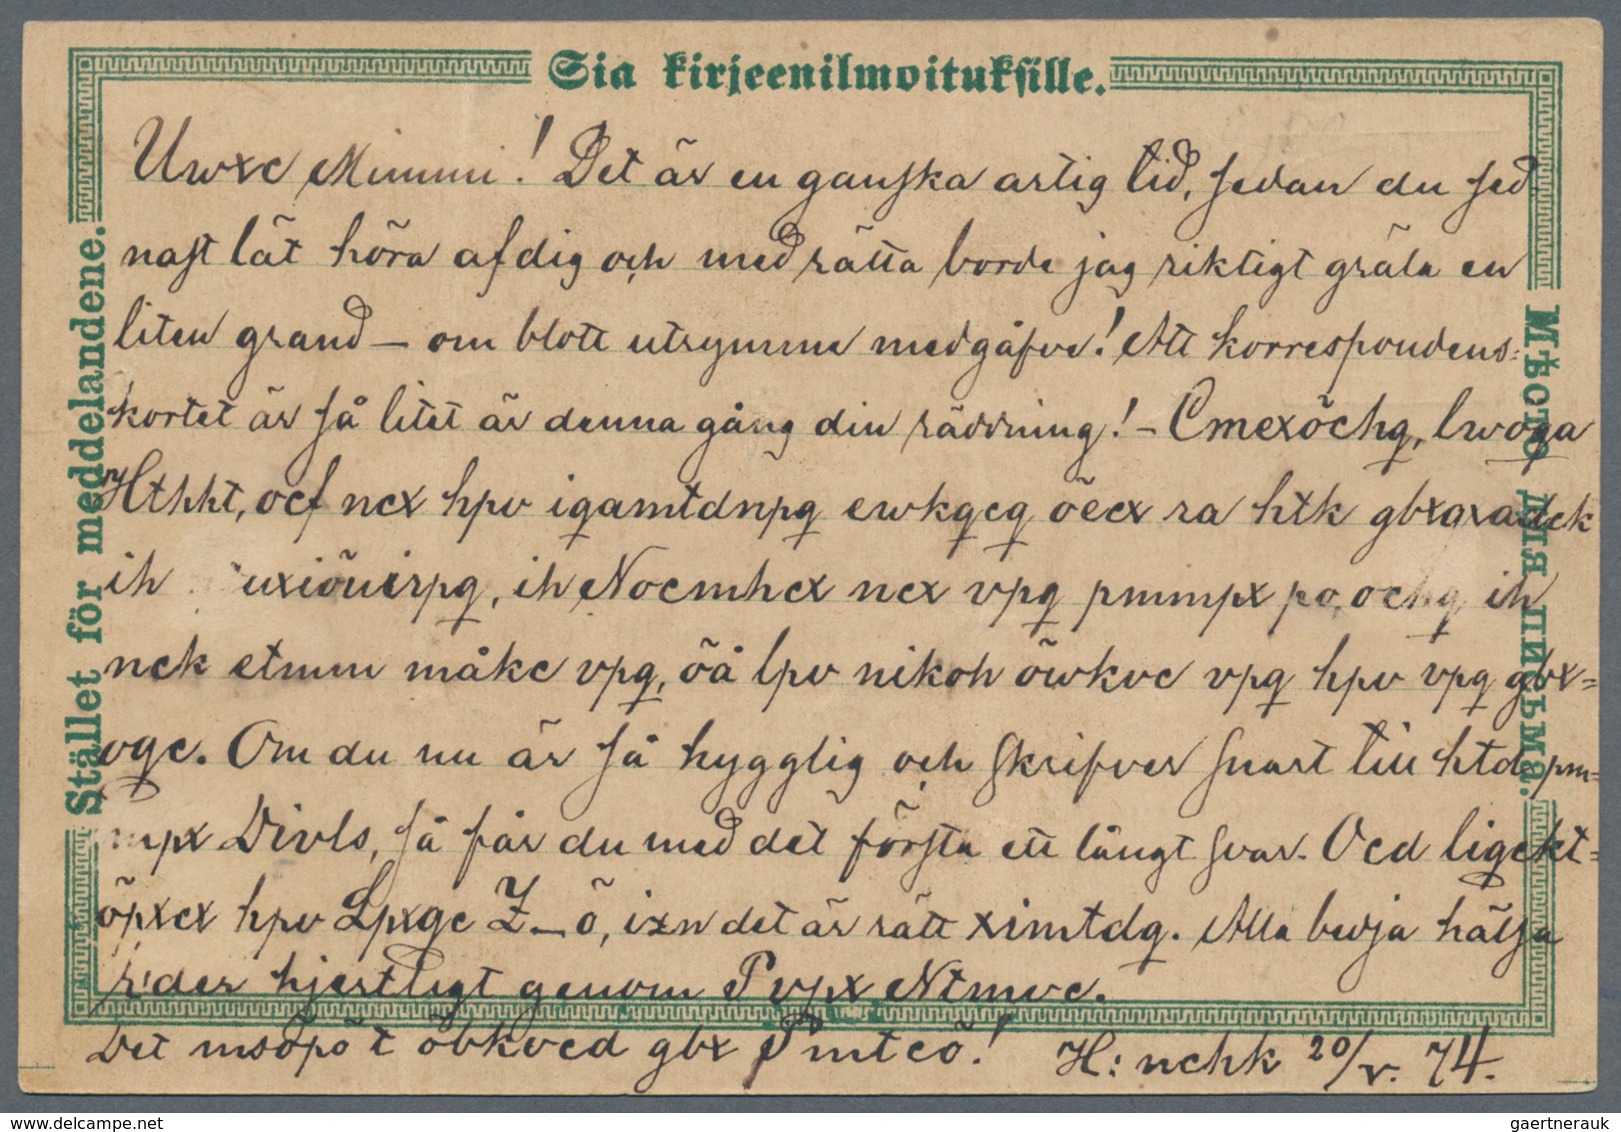 Sia kirjeenilmoituksille.
Stället för meddelandene.
Мѣсто для письма.
Uwxc Mimmi! Det är en ganska artig tid, sedan du sed-
nast lät höra af dig och med rätta borde jag riktigt gräla en
liten grand – om blott utrymme medgåfve! Att korrespondens-
kortet är så litet är denna gång din räddning! – Cmexöchq, lwoqa
Htkkt, ocf ncx hpv iqamtdnpq ewkqcq öecx ra htk gbxaxadck
ih uxiöuirpq, ih Nocmhcx ncx vpq pmmpx ih
nck etmm måkc vpq, öå lpv nikoh öwkvc vpq hpv vpq gbx-
oqc. Om du nu är så hygglig och skrifver snart till htdpm-
mpx Divls, så får du med det första ett långt svar. Ocd liqckt-
öpxcx hpv Lpxgc Z–ö, ixn det är rätt ximtdq. Alla bedja hälsa
eder hjertligt genom Pvpx Ntmvc.
Det msöpöt öbkvcd gbx Pmtcö! H: nchk 20/V. 74.
gaertnerauk
www.delcampe.net